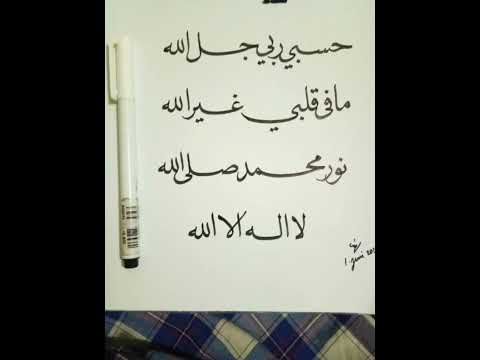 حسبي ربي جل الله
مافي قلبي غير الله
نور محمد صلى الله
لا اله الا الله